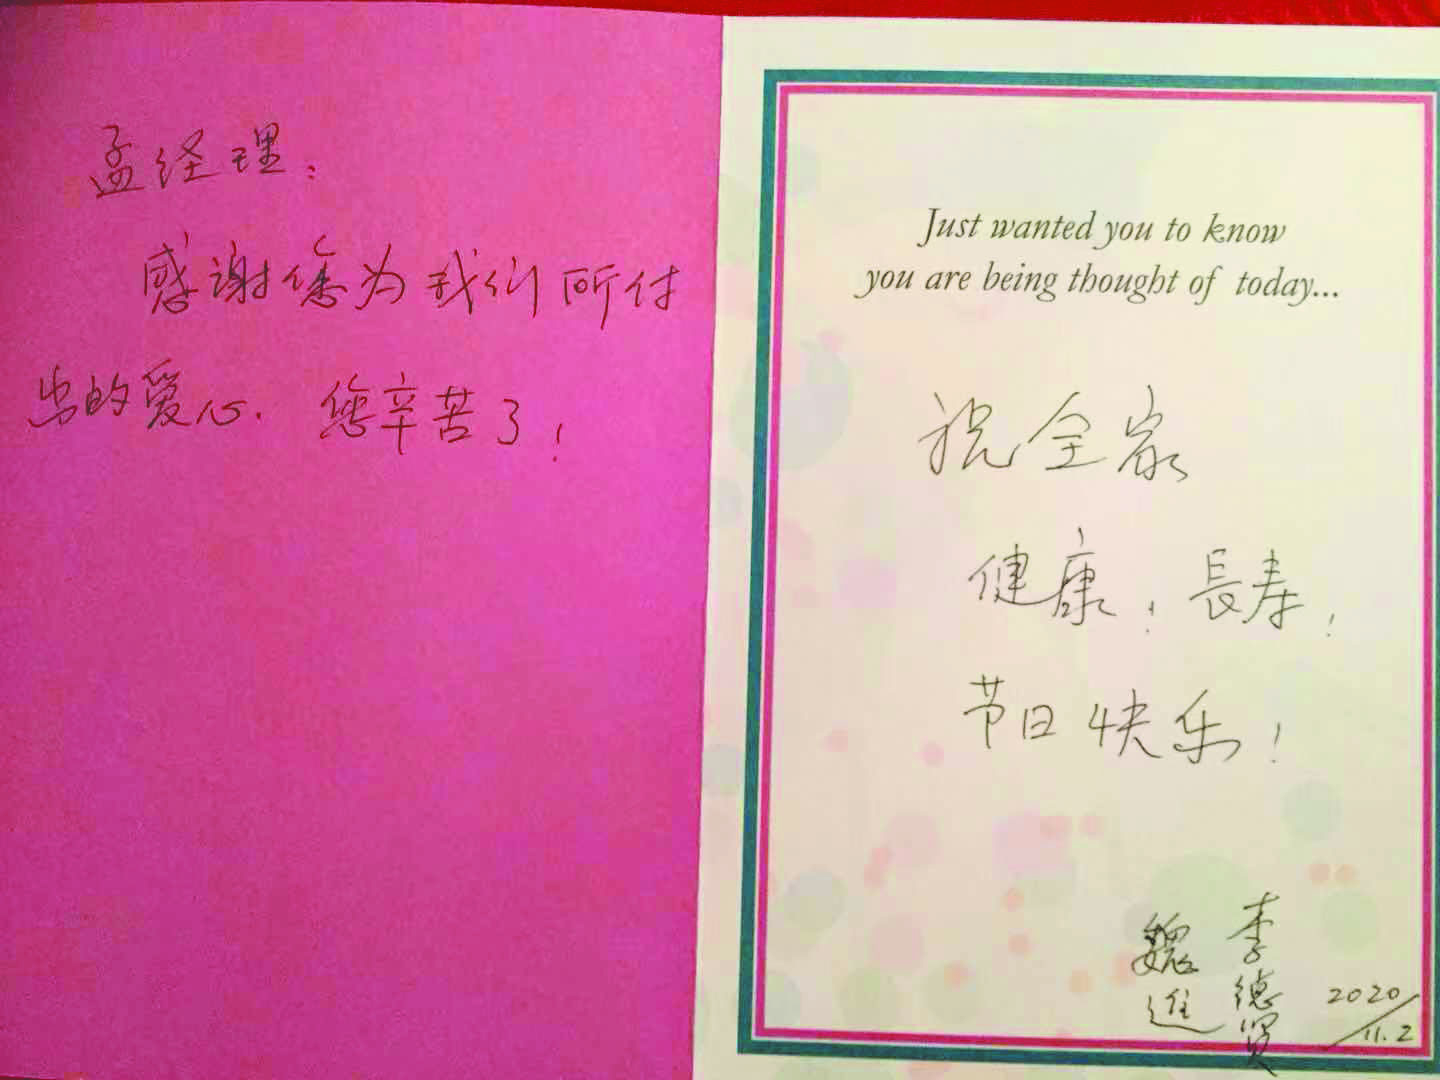 孟经理：
感谢您为我们所付
出的爱心. 您辛苦了！
Just wanted you to know
you are being thought of today...
祝全家
健康！長寿！
节日快乐！
李德贤
魏進
2020/11.2